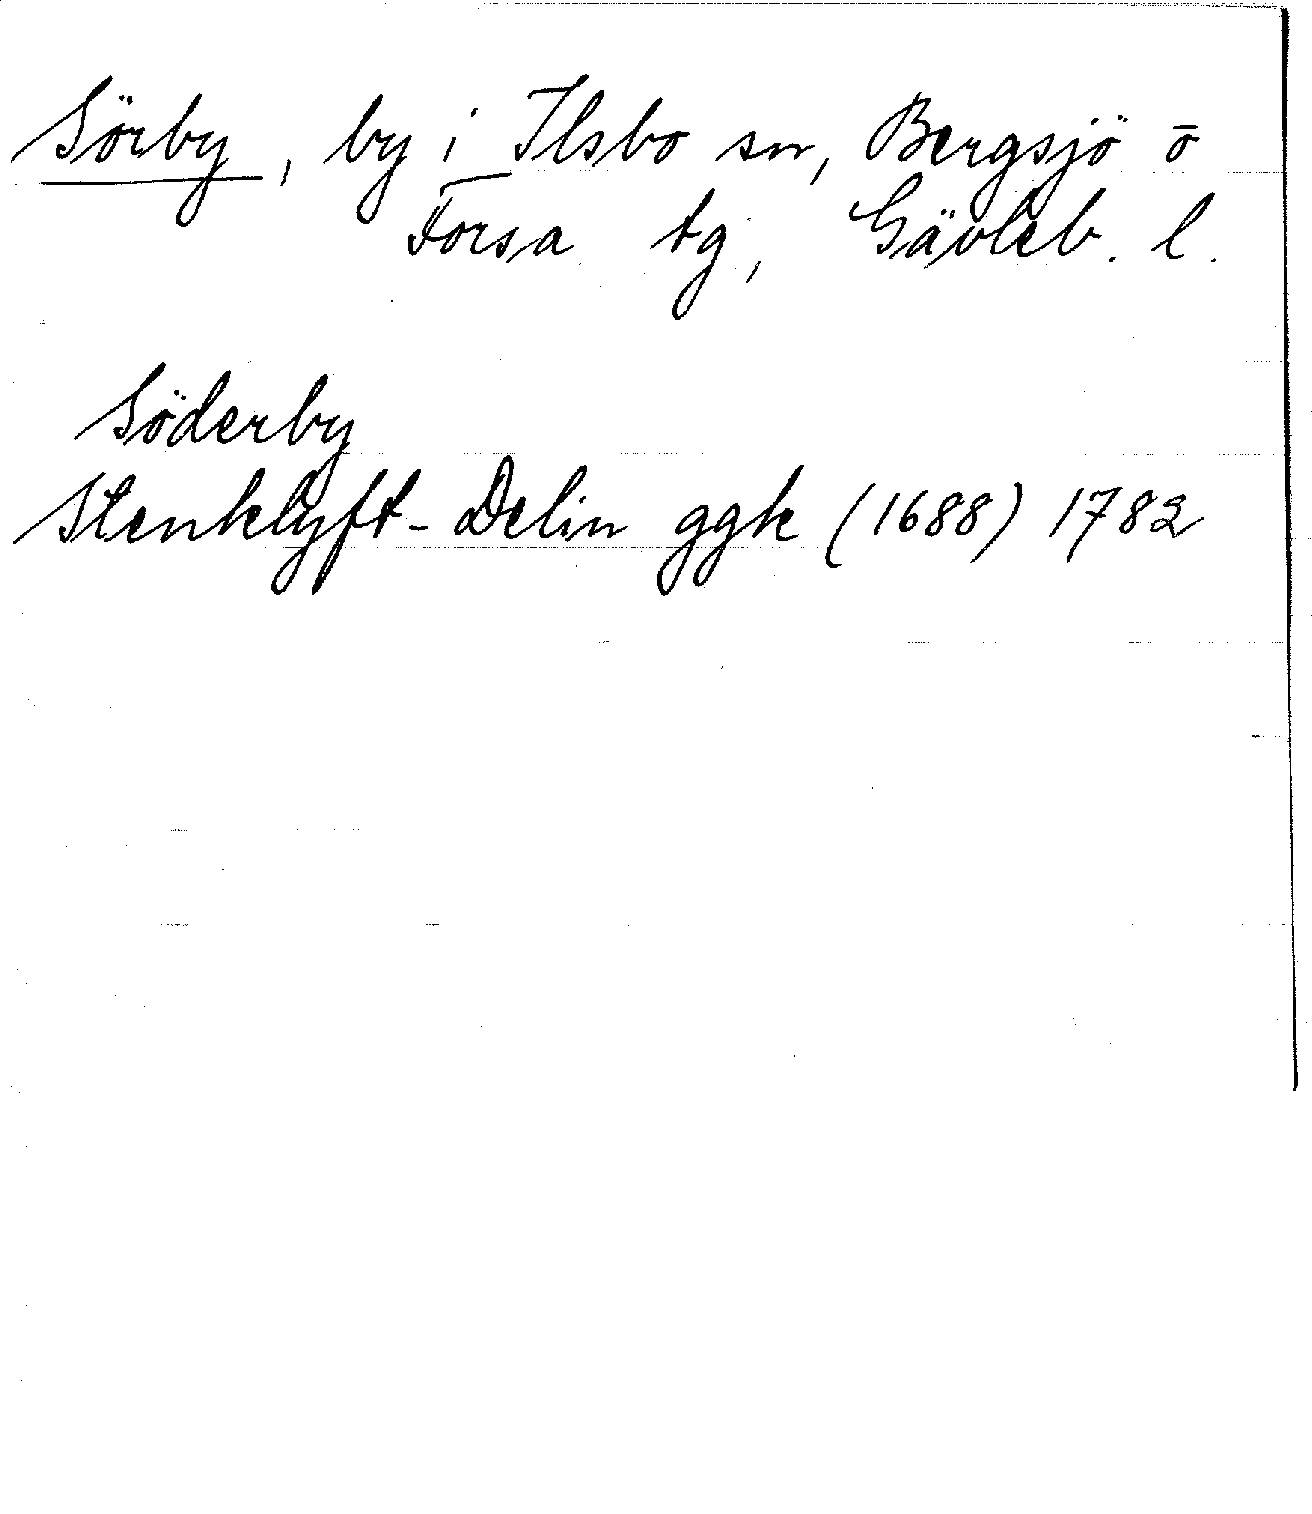 Sörby, by i Ilsbo sn, Bergsjö ō
Forsa tg, Gävleb. l.
Söderby
Stenklyft-Delin ggk (1688) 1782